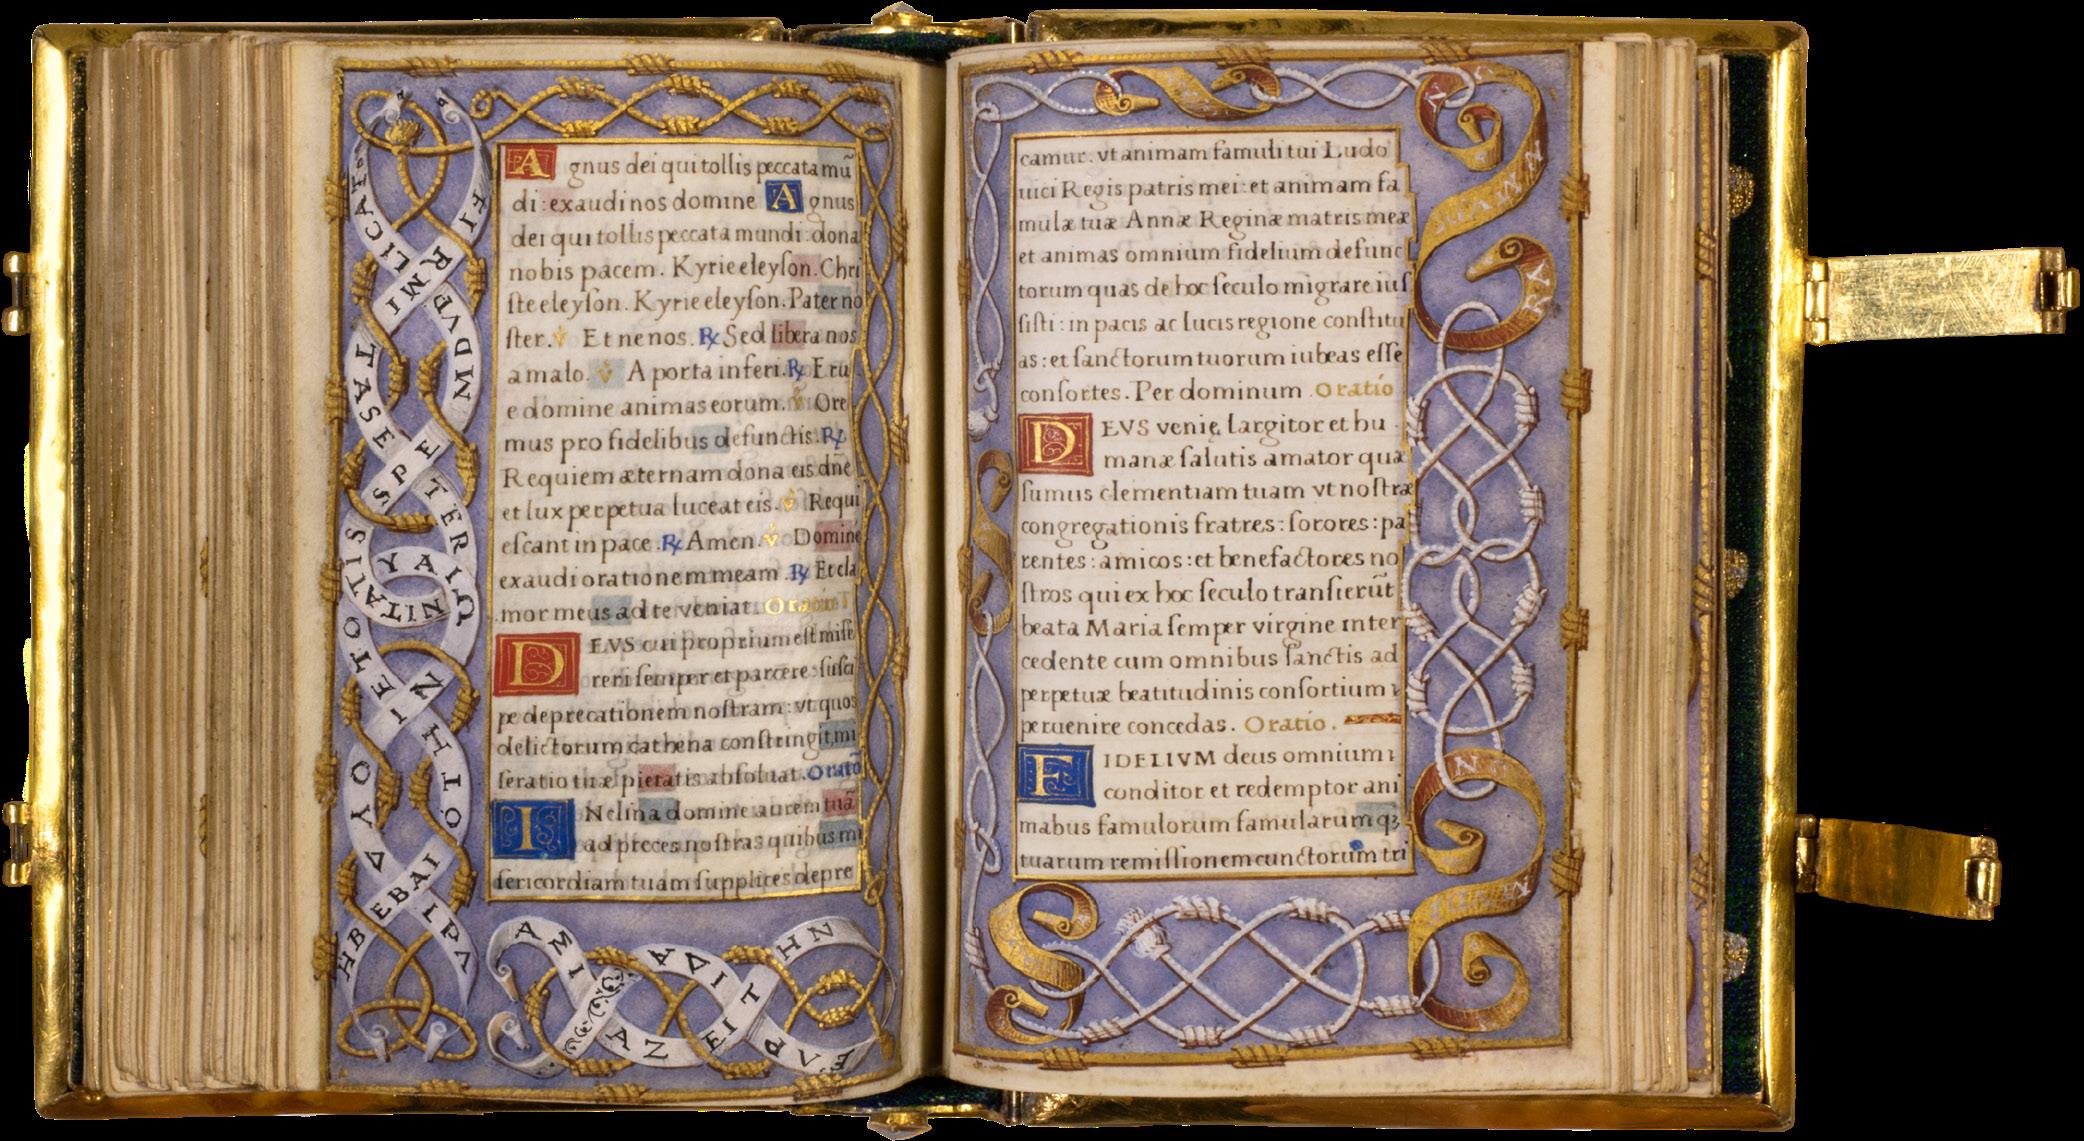 Agnus dei qui tollis peccata mũ
di : exaudi nos domine Agnus
dei qui tollis peccata mundi : dona
nobis pacem . Kyrie eleyſon . Chri
ſte eleyſon . Kyrie eleyſon . Pater no
ſter . ℣ Et ne nos . ℟ Sed libera nos
a malo . ℣ A porta inferi . ℟ Eru
e domine animas eorum . ℣ Ore
mus pro fidelibus defunctis . ℟
Requiem æternam dona eis dñe
et lux perpetua luceat eis . ℣ Requi
eſcant in pace . ℟ Amen . ℣ Domine
exaudi orationem meam . ℟ Et cla
mor meus ad te veniat . Oratio
DEVS cui proprium eſt miſe
reri ſemper et parcere : ſuſci
pe deprecationem noſtram : vt quos
delictorum cathena conſtringit, mi
ſeratio tuæ pietatis abſoluat . Oratõ
INclina domine aurem tuã
ad preces noſtras quibus mi
ſericordiam tuam ſupplices depre
camur . vt animam famuli tui Ludo
uici Regis patris mei : et animam fa
mulæ tuæ Annæ Reginæ matris meæ
et animas omnium fidelium defunc
torum quas de hoc ſeculo migrare iuſ
ſiſti : in pacis ac lucis regione conſtitu
as : et ſanctorum tuorum iubeas eſſe
conſortes . Per dominum . Oratio
DEVS venię largitor et hu
manæ ſalutis amator quæ
ſumus clementiam tuam vt noſtræ
congregationis fratres : ſorores : pa
rentes : amicos : et benefactores no
ſtros qui ex hoc ſeculo tranſierũt
beata Maria ſemper virgine inter
cedente cum omnibus ſanctis ad
perpetuæ beatitudinis conſortium
peruenire concedas . Oratio .
FIDELIVM deus omnium
conditor et redemptor ani
mabus famulorum famularum qȝ
tuarum remiſſionem cunctorum tri